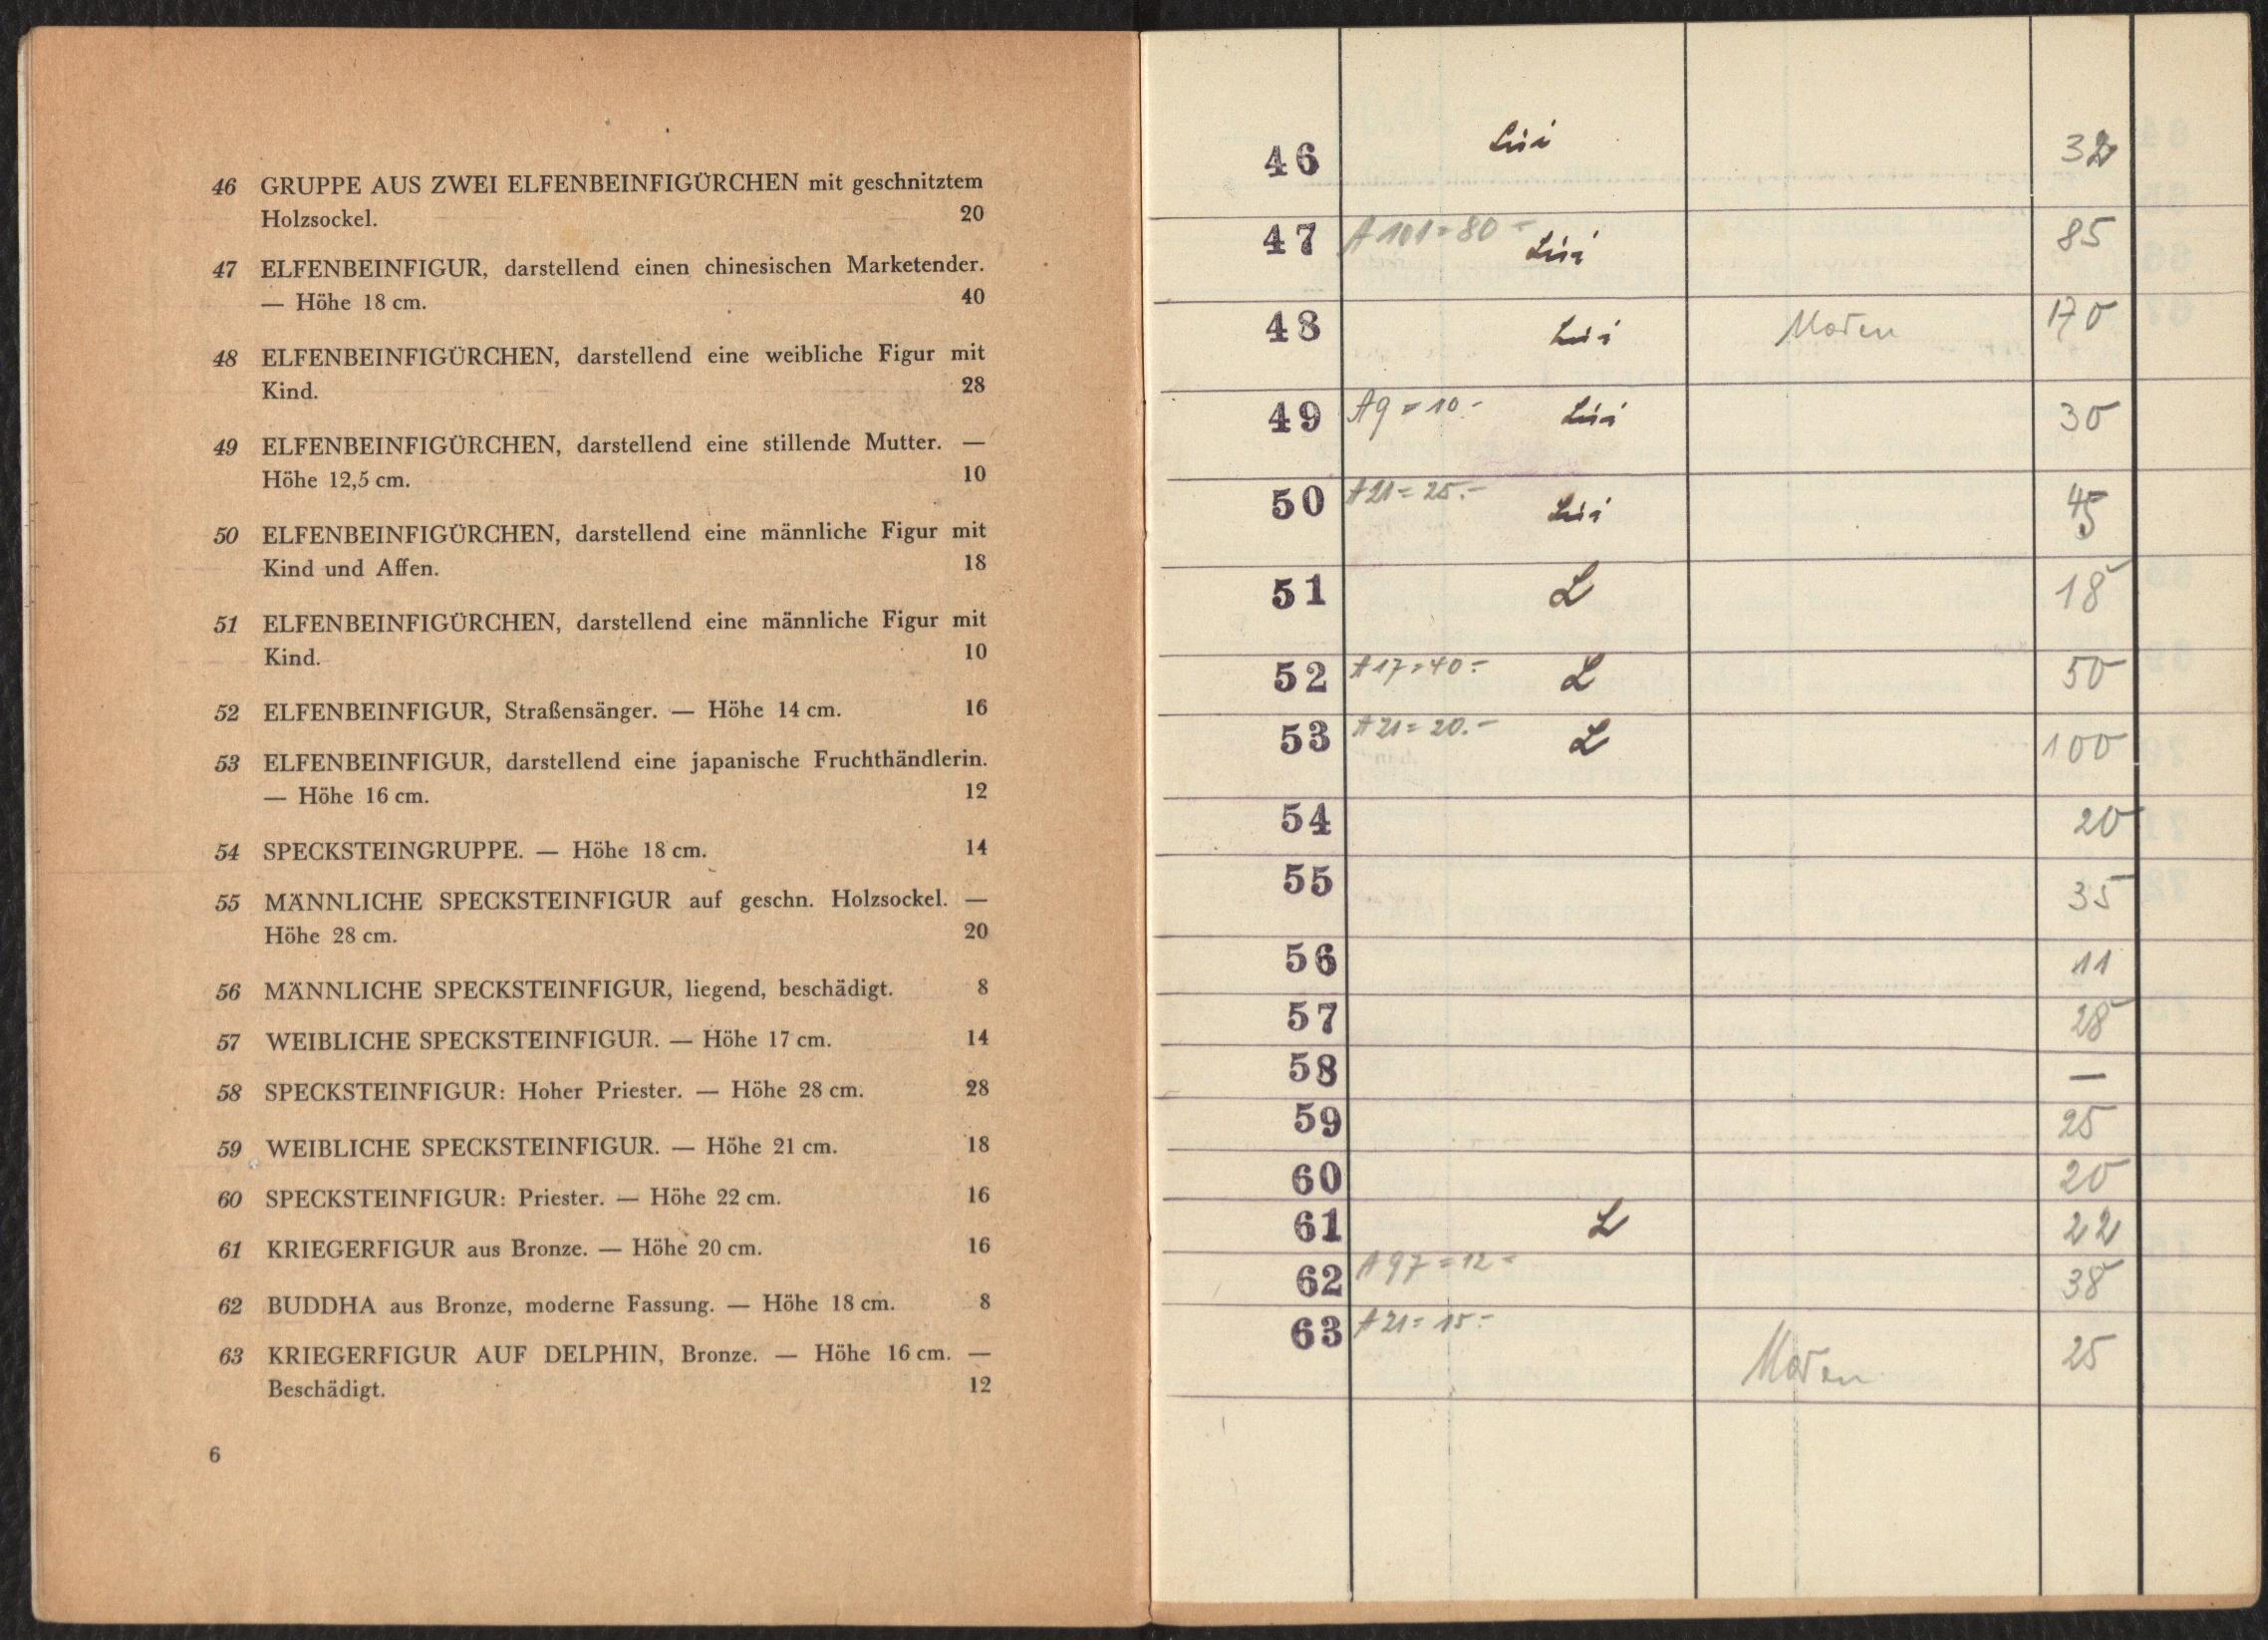 46 GRUPPE AUS ZWEI ELFENBEINFIGÜRCHEN mit geschnitztem
Holzsockel. 20
47 ELFENBEINFIGUR, darstellend einen chinesischen Marketender.
— Höhe 18 cm. 40
48 ELFENBEINFIGÜRCHEN, darstellend eine weibliche Figur mit
Kind. 28
49 ELFENBEINFIGÜRCHEN, darstellend eine stillende Mutter. —
Höhe 12,5 cm. 10
50 ELFENBEINFIGÜRCHEN, darstellend eine männliche Figur mit
Kind und Affen. 18
51 ELFENBEINFIGÜRCHEN, darstellend eine männliche Figur mit
Kind. 10
52 ELFENBEINFIGUR, Straßensänger. — Höhe 14 cm. 16
53 ELFENBEINFIGUR, darstellend eine japanische Fruchthändlerin.
— Höhe 16 cm. 12
54 SPECKSTEINGRUPPE. — Höhe 18 cm. 14
55 MÄNNLICHE SPECKSTEINFIGUR auf geschn. Holzsockel. —
Höhe 28 cm. 20
56 MÄNNLICHE SPECKSTEINFIGUR, liegend, beschädigt. 8
57 WEIBLICHE SPECKSTEINFIGUR. — Höhe 17 cm. 14
58 SPECKSTEINFIGUR: Hoher Priester. — Höhe 28 cm. 28
59 WEIBLICHE SPECKSTEINFIGUR. — Höhe 21 cm. 18
60 SPECKSTEINFIGUR: Priester. — Höhe 22 cm. 16
61 KRIEGERFIGUR aus Bronze. — Höhe 20 cm. 16
62 BUDDHA aus Bronze, moderne Fassung. — Höhe 18 cm. 8
63 KRIEGERFIGUR AUF DELPHIN, Bronze. — Höhe 16 cm. —
Beschädigt. 12
6
46 32
47 A 101 = 80 - 85
48 170
49 A9 = 10.- 30
50 A21 = 25.- 45
51 L 18
52 A17 = 40.- L 50
53 A21 = 20.- L 100
54 20
55 35
56 11
57 28
58 —
59 25
60 20
61 L 22
62 A 97 = 12 - 38
63 A21 = 15.- 25